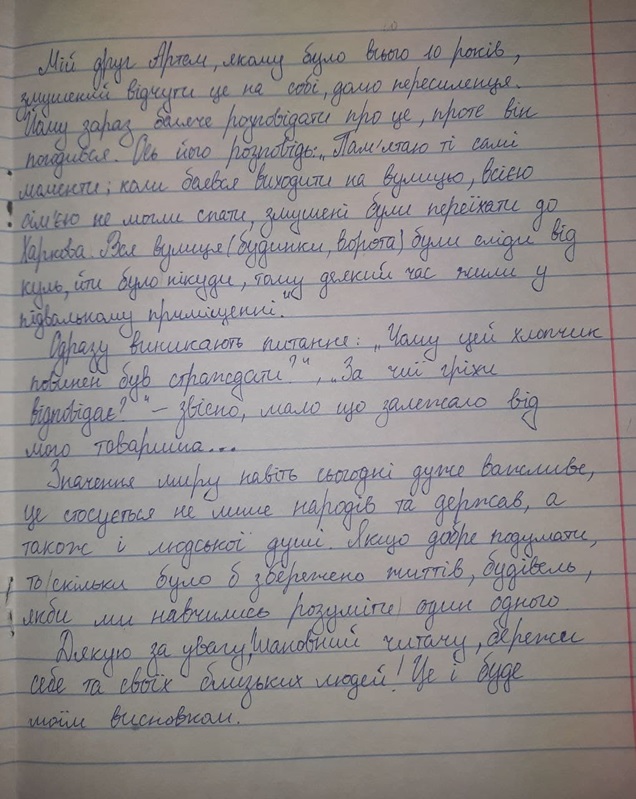 Мій друг Артем, якому було всього 10 років,
змушений відчути це на собі, долю переселенця.
Йому зараз боляче розповідати про це, проте він
погодився. Ось його розповідь: „Пам'ятаю ті самі
моменти; коли боявся виходити на вулицю, всією
сім'єю не могли спати, змушені були переїхати до
Харкова. Вся вулиця (будинки, ворота) були сліди від
куль, йти було нікуди, тому деякий час жили у
підвальному приміщенні."
Одразу виникають питання: „Чому цей хлопчик
повинен був страждати?", „За чиї гріхи
відповідає?" – звісно, мало що залежало від
мого товариша...
Значення миру навіть сьогодні дуже важливе,
це стосується не лише народів та держав, а
також і людської душі. Якщо добре подумати,
то скільки було б збережено життів, будівель,
якби ми навчились розуміти один одного.
Дякую за увагу, шановний читачу, бережи
себе та своїх близьких людей! Це і буде
моїм висновком.